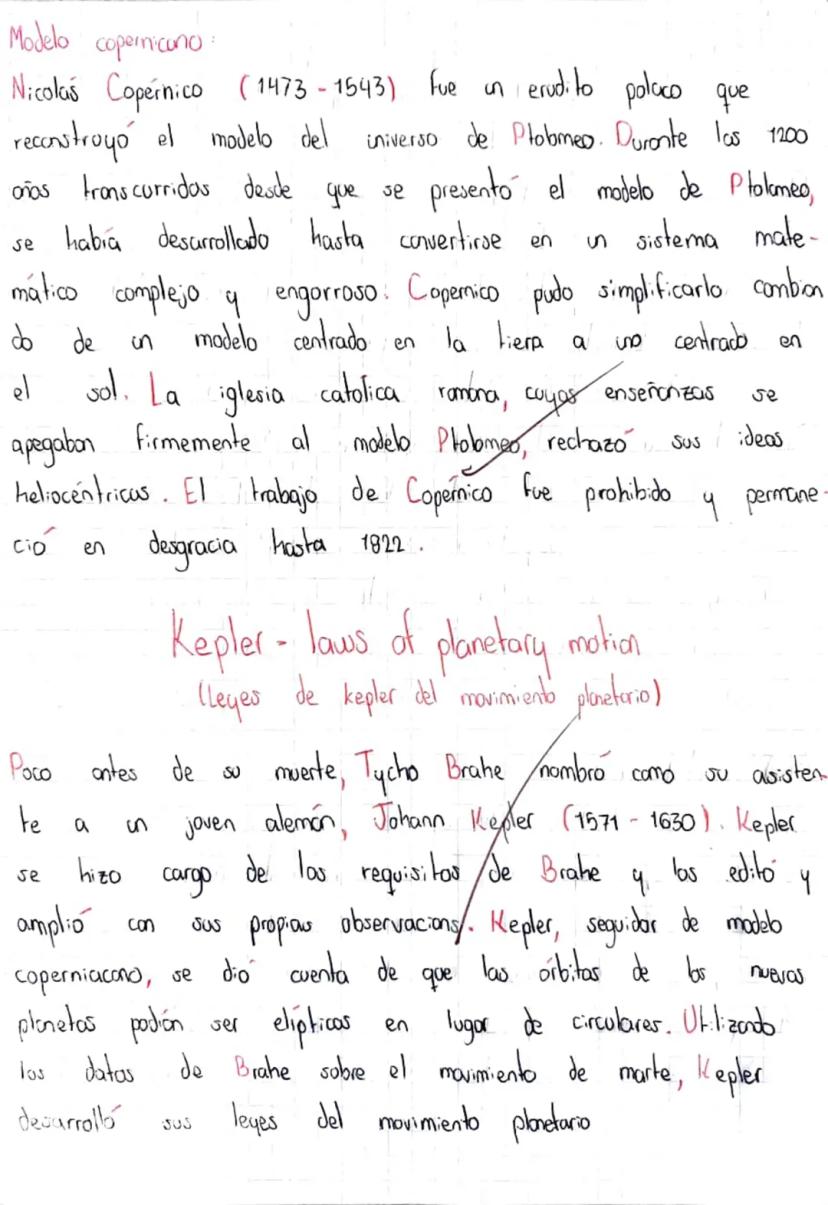 Modelo copernicano:
Nicolás Copérnico (1473 - 1543) fue un erudito polaco que
reconstruyó el modelo del iniverso de Ptolomeo. Durante los 1200
años transcurridos desde que se presentó el modelo de Ptolomeo,
se había desarrollado hasta convertirse en un sistema mate-
mático complejo y engorroso. Copernico pudo simplificarlo cambian
do de un modelo centrado en la tierra a uno centrado en
el sol. La iglesia catolica romana, cuyas enseñanzas se
apegaban firmemente al modelo Ptolomeo, rechazó sus ideas
heliocéntricas. El trabajo de Copérnico fue prohibido y permane-
ció en desgracia hasta 1822.
Kepler - laws of planetary motion
(leyes de kepler del movimiento planetario)
Poco antes de su muerte, Tycho Brahe nombró como su asisten-
te a un joven alemán, Johann Kepler (1571 - 1630). Kepler
se hizo cargo de los requisitos de Brahe y los editó y
amplió con sus propias observacions. Kepler, seguidor de modelo
coperniacano, se dió cuenta de que las órbitas de los nuevas
planetas podían ser elípticas en lugar de circulares. Utilizando
los datos de Brahe sobre el movimiento de marte, Kepler
desarrolló sus leyes del movimiento planetario